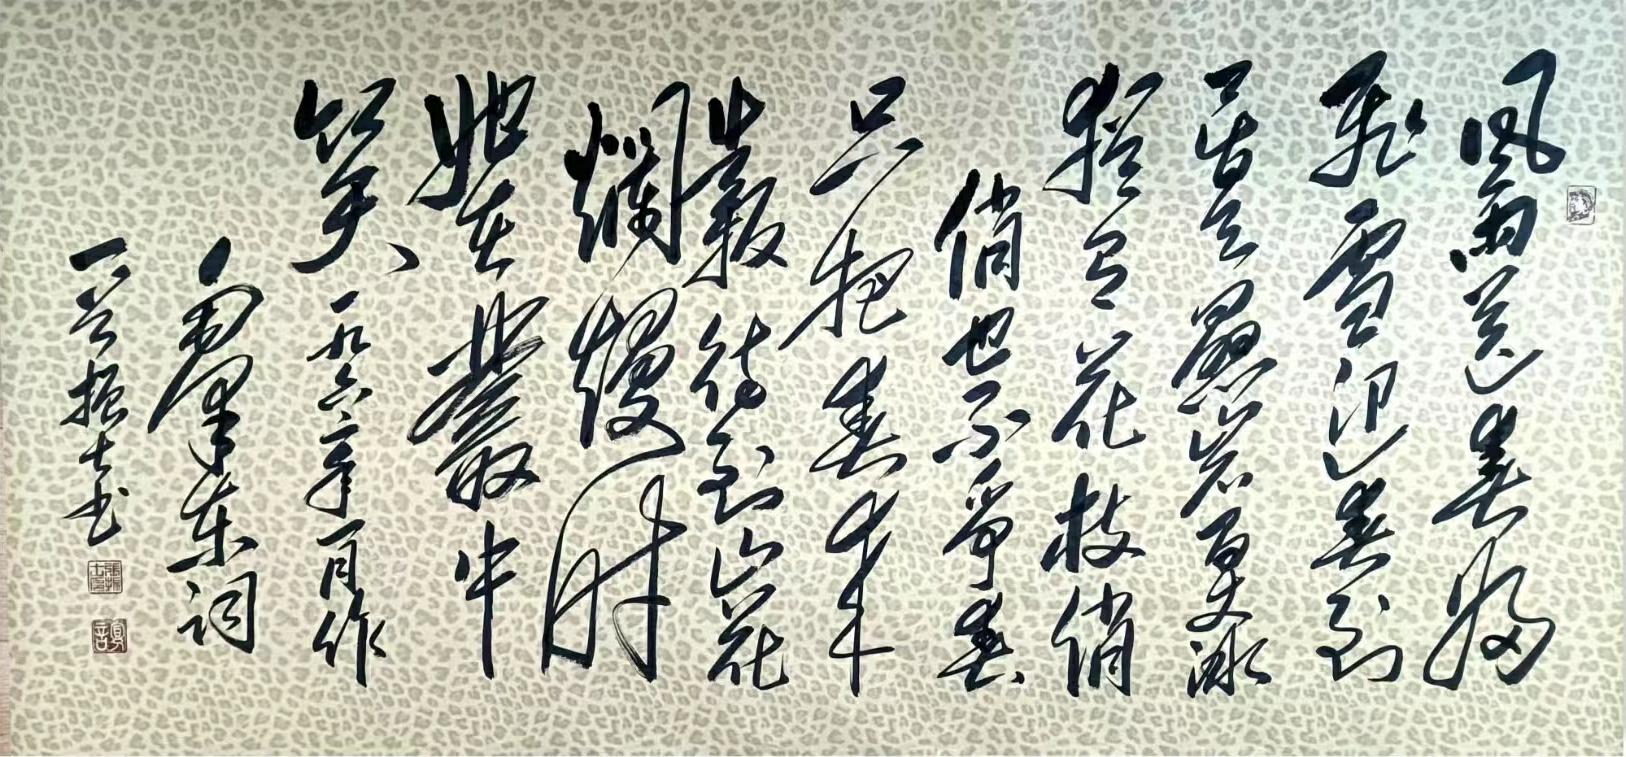 风雨送春归
飞雪迎春到
已是悬岩百丈冰
犹有花枝俏
俏也不争春
只把春来
报待到山花
爛熳时
她在叢中
笑 一九六 年 月作
毛泽东词
振士书